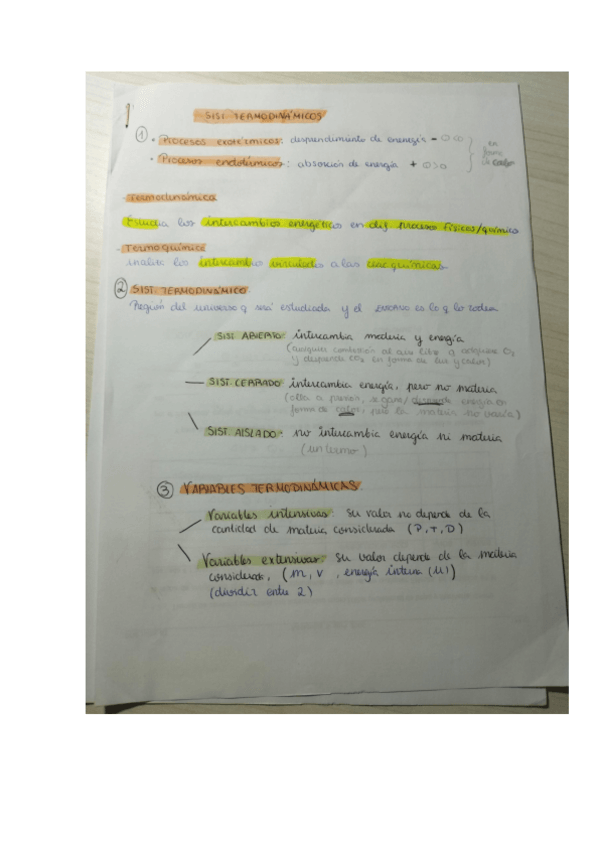 SIST. TERMODINÁMICOS
① • Procesos exotérmicos: desprendimiento de energía -
• Procesos endotérmicos: absorción de energía + Q>0
en forma de calor
- Termodinámica
Estudia los intercambios energéticos en dif procesos físicos/químico
- Termoquímica
analiza los intercambios a las reac químicas.
② SIST. TERMODINÁMICO
Región del universo q será estudiada y el ENTORNO es lo q lo rodea
SIST ABIERTO: intercambia materia y energía
al aire libre q O₂
y desprende CO₂ en forma de luz y calor)
SIST. CERRADO intercambia energía, pero no materia
(olla a presión, se gana/desprende energía en
forma de calor, pero la materia no varía)
SIST. AISLADO: no intercambia energía ni materia
(un termo)
③ VARIABLES TERMODINÁMICAS
Variables intensivas: su valor no depende de la
cantidad de materia considerada (P, T, D)
Variables extensivas: su valor depende de la materia
considerada, (m, V, energía interna (U))
(dividir entre 2)